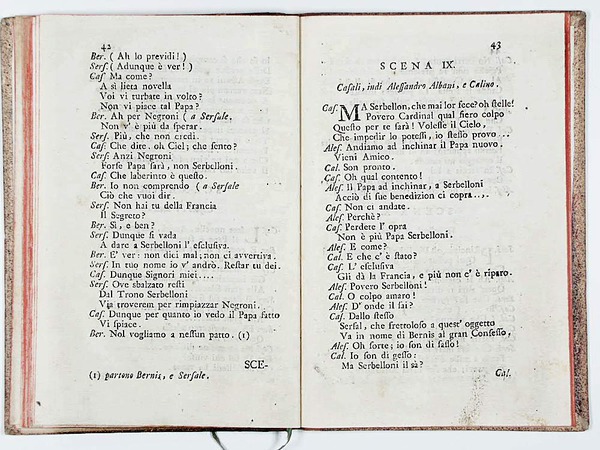 42
Ber. ( Ah lo previdi ! )
Serſ. ( Adunque è ver ! )
Caſ Ma come?
A sì lieta novella
Voi vi turbate in volto?
Non vi piace tal Papa?
Ber. Ah per Negroni ( a Serſale.
Non v' è più da sperar.
Serſ. Più, che non credi.
Caſ: Che dite. oh Ciel; che ſento?
Serſ: Anzi Negroni
Forſe Papa ſarà, non Serbelloni.
Caſ. Che laberinto è queſto.
Ber. Io non comprendo ( a Serſale
Ciò che vuoi dir.
Serſ. Non hai tu della Francia
Il Segreto?
Ber. Sì, e ben?
Serſ. Dunque ſi vada
A dare a Serbelloni l' eſcluſiva.
Ber. E' ver: non dici mal; non ci avvertiva.
Serſ. In tuo nome io v' andrò. Reſtar tu dei.
Caſ. Dunque Signori miei....
Serſ. Ove sbalzato reſti
Dal Trono Serbelloni
Via troverem per rimpiazzar Negroni.
Caſ. Dunque per quanto io vedo il Papa fatto
Vi ſpiace.
Ber. Nol vogliamo a neſſun patto. (1)
SCE-
(1) partono Bernis, e Serſale.
43
SCENA IX.
Caſali, indi Aleſſandro Albani, e Calino.
Caſ. MA Serbellon, che mai lor fece? oh ſtelle!
Povero Cardinal qual fiero colpo
Queſto per te ſarà! Voleſſe il Cielo,
Che impedir lo poteſſi, io ſteſſo provo...
Aleſ. Andiamo ad inchinar il Papa nuovo.
Vieni Amico.
Cal. Son pronto.
Caſ. Oh qual contento!
Aleſ. Il Papa ad inchinar, a Serbelloni
Acciò di sue benedizion ci copra....
Caſ. Non ci andate.
Aleſ. Perchè?
Caſ. Perdete l' opra
Non è più Papa Serbelloni.
Aleſ. E come?
Cal. E che c' è ſtato?
Caſ. L' eſcluſiva
Gli dà la Francia, e più non c' è riparo.
Aleſ. Povero Serbelloni!
Cal. O colpo amaro!
Aleſ. D' onde il ſai?
Caſ. Dallo ſteſſo
Serſal, che frettoloſo a queſt' oggetto
Va in nome di Bernis al gran Conſeſſo.
Aleſ. Oh ſorte; io ſon di ſaſſo!
Cal. Io ſon di geſſo:
Ma Serbelloni il sà?
Caſ.